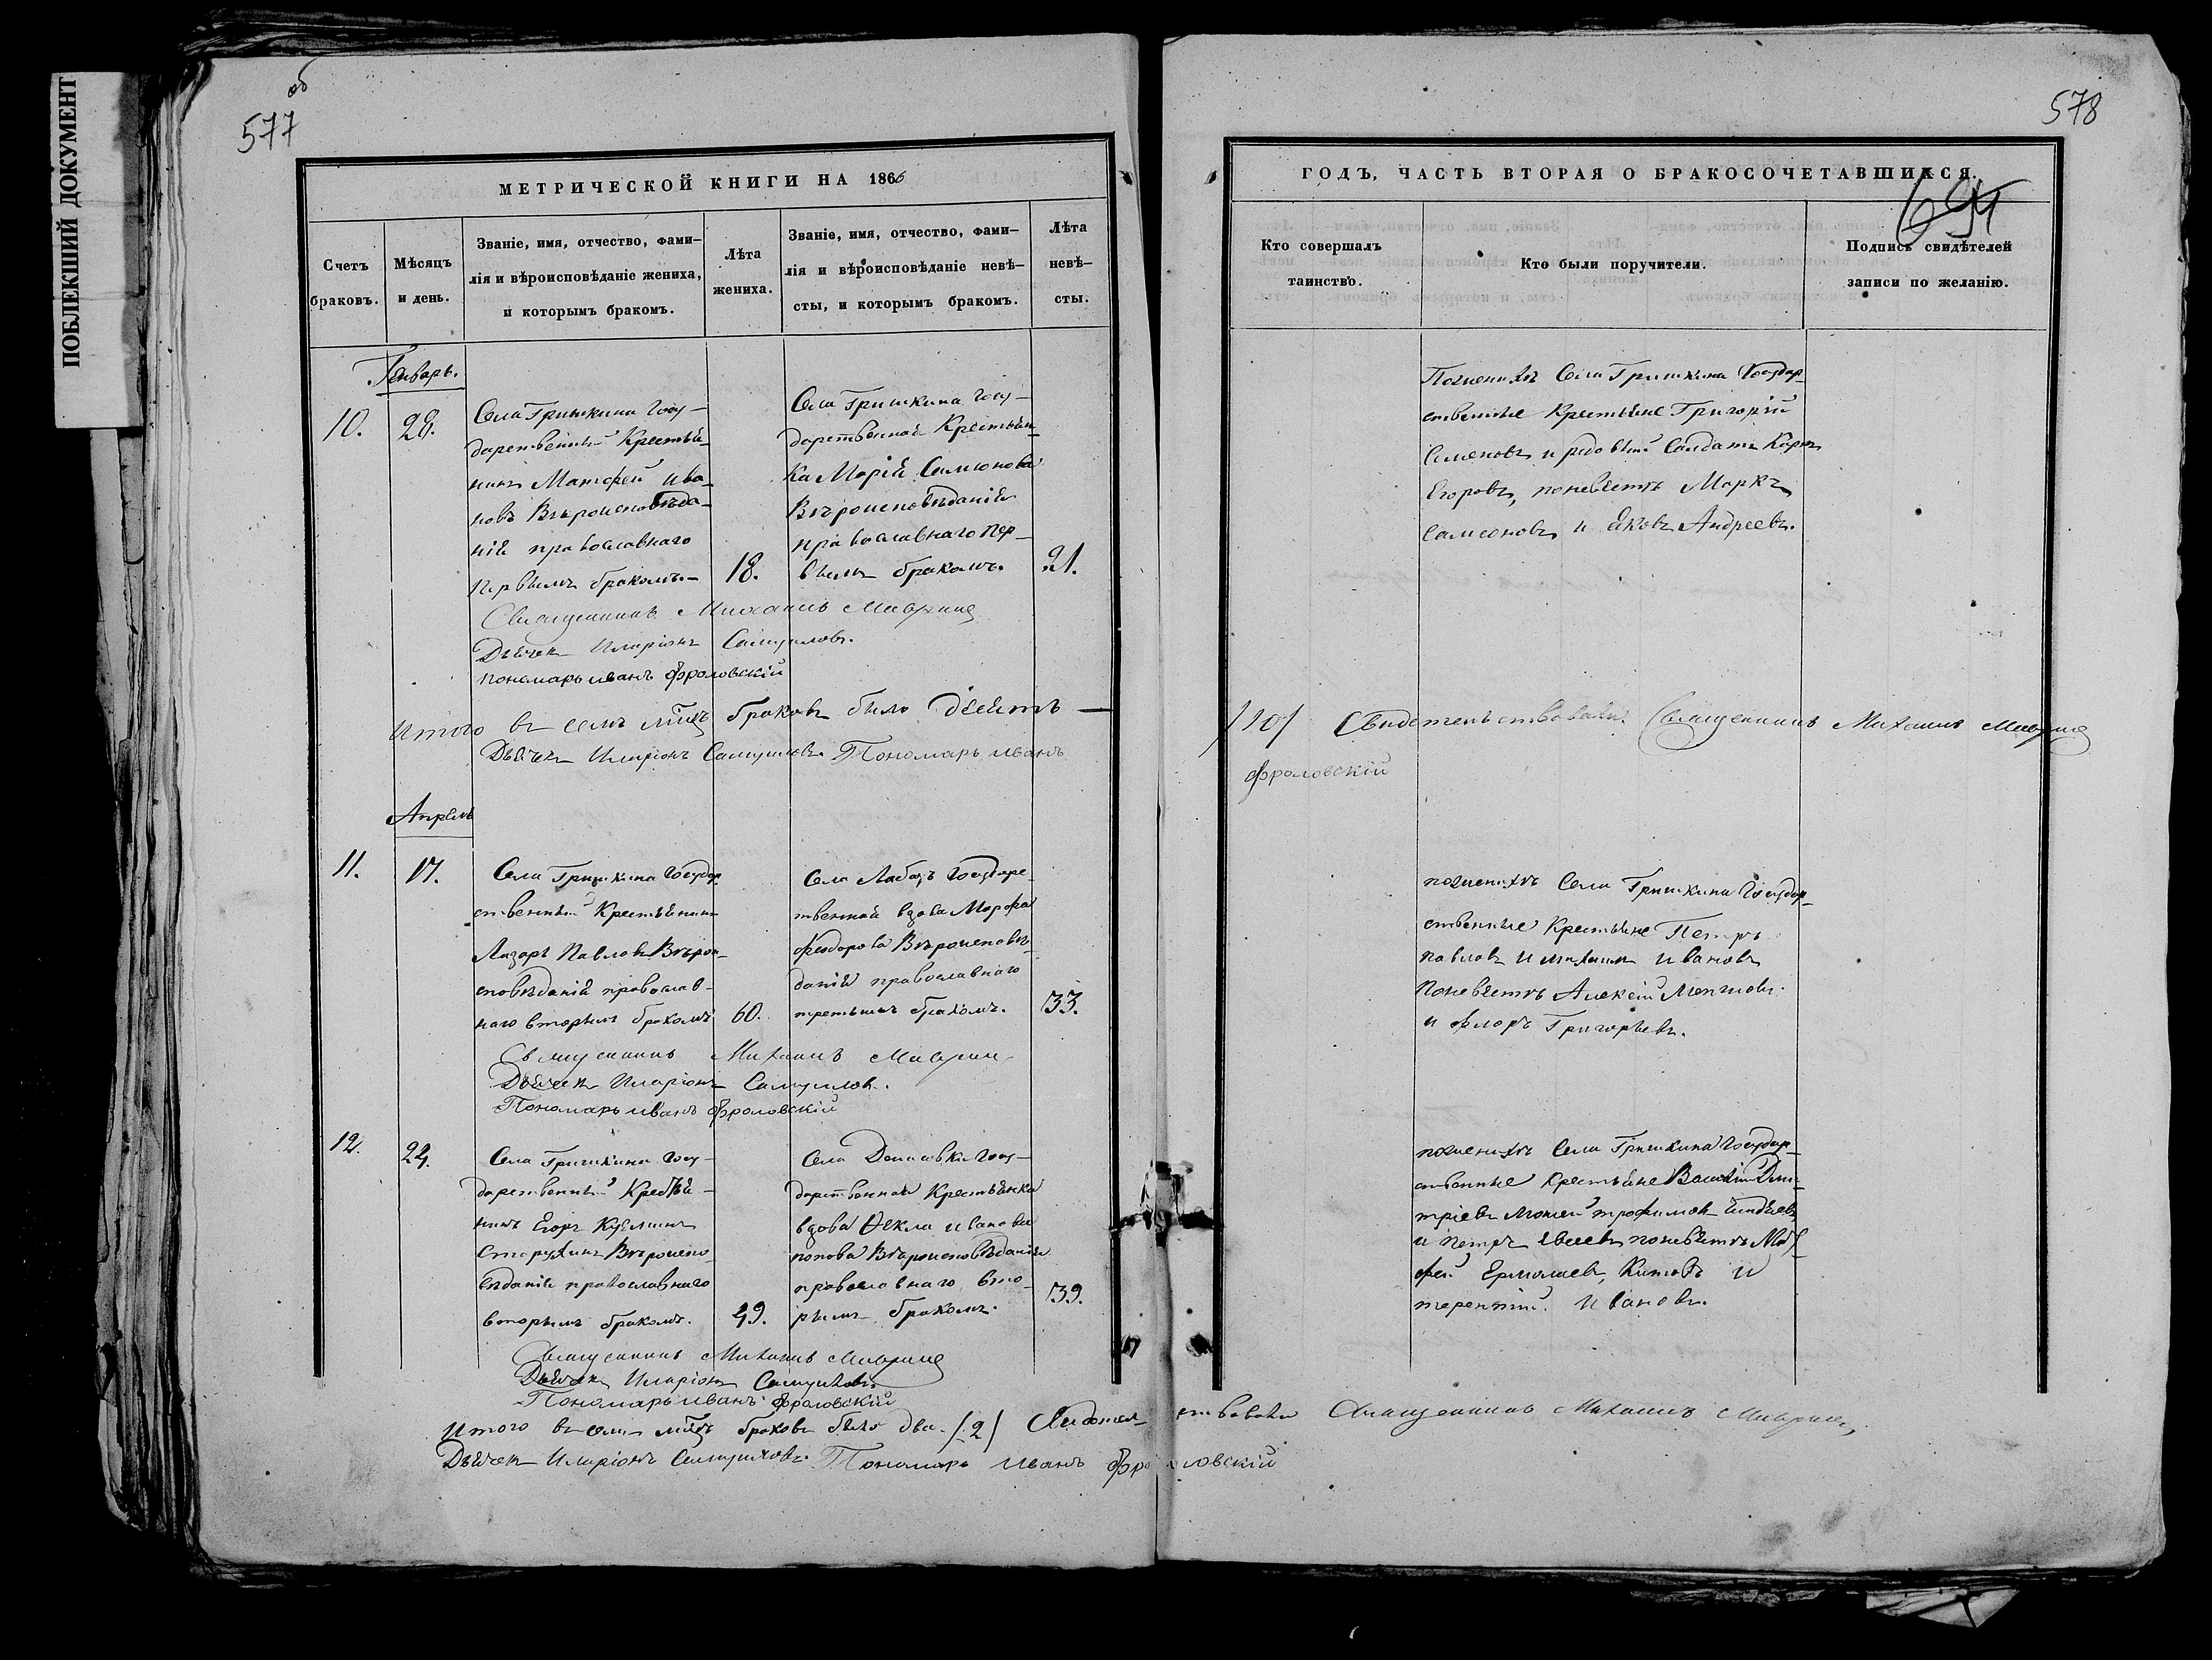 ПОБЛЕКШИЙ ДОКУМЕНТ
об
577
МЕТРИЧЕСКОЙ КНИГИ НА 1866
Счетъ браковъ.
Мѣсяцъ и день.
Званіе, имя, отчество, фами-
лія и вѣроисповѣданіе жениха,
и которымъ бракомъ.
Лѣта
жениха.
Званіе, имя, отчество, фами-
лія и вѣроисповѣданіе невѣ-
сты, и которымъ бракомъ.
Лѣта
невѣ-
сты.
Генварь.
10.
28.
Села Гришкина Госу-
дарственный Крестья-
нинъ Матфей Ива-
новъ Вѣроисповѣда-
нія православнаго
первымъ бракомъ.-
18.
Села Гришкина Госу-
дарственная Крестьян-
ка Марія Самсонова
Вѣроисповѣданія
православнаго пер-
вымъ бракомъ.
21.
Священникъ Михаилъ
Дьячек Иларіонъ Самуиловъ.
пономарь иванъ фроловскій
Итого въ семъ мѣцѣ браковъ было десять —
Дьячек Иларіонъ Самуиловъ. Пономарь иванъ
Апрель
11.
17.
Села Гришкина Государ-
ственный Крестьянинъ
Лазарь Павловъ Вѣрои-
сповѣданія православ-
наго вторымъ бракомъ
60.
Села Лабазъ Государс-
твенная вдова Марфа
Феодорова Вѣроисповѣ-
данія православнаго
третьимъ бракомъ.
33.
Священникъ Михаилъ
Дьячек Иларіонъ Самуилов.
Пономарь иванъ фроловскій
12.
24.
Села Гришкина Госу-
дарственный Крестья-
нинъ Егоръ Кузминъ
Старухинъ Вѣроиспо
вѣданія православнаго
вторымъ бракомъ.
49.
Села Госу-
дарственная Крестьянка
вдова Фекла иванова
попова Вѣроисповѣданія
православнаго вто-
рымъ бракомъ.
39.
Священникъ Михаилъ
Дьячек Иларіонъ Самуиловъ.
Пономарь Иванъ фроловскій
Итого въ семъ мѣцѣ браковъ было два. /2/ Свидетельствовали Священникъ Михаилъ
Дьячек Иларіонъ Самуиловъ. Пономарь Иванъ фроловскій
578
ГОДЪ, ЧАСТЬ ВТОРАЯ О БРАКОСОЧЕТАВШИХСЯ.
Кто совершалъ
таинство.
Кто были поручители.
Подпись свидѣтелей
записи по желанію.
Поженихѣ Села Гришкина Государ-
ственные Крестьяне Григорій
Семеновъ и рядовый Салдатъ Карпъ
Егоровъ, поневѣстѣ Маркъ
Самсоновъ и Яковъ Андреевъ.
/10/ Свидетельствовали. Священникъ Михаилъ
фроловскій
поженихѣ Села Гришкина Государ-
ственные Крестьяне Петръ
павловъ и михаилъ Ивановъ
Поневѣстѣ Алексій
и флоръ Григорьевъ.
поженихѣ Села Гришкина Государ-
ственные Крестьяне Василій Дми-
тріевъ Мокей трофимовъ
и петръ поневѣстѣ Мат-
фей Ермолаевъ, Китовъ и
терентий Ивановъ.